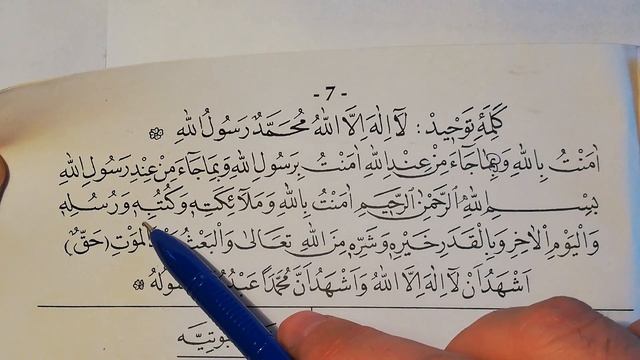 - 7 -
كَلِمَۀ تَوْحِيدْ : لَٓا اِلٰهَ اِلَّا اللهُ مُحَمَّدٌ رَسُولُ اللهِ
اٰمَنْتُ بِاللهِ وَبِمَا جَٓاءَ مِنْ عِنْدِ اللهِ اٰمَنْتُ بِرَسُولِ اللهِ وَبِمَا جَٓاءَ مِنْ عِنْدِ رَسُولِ اللهِ
بِسْمِ اللهِ الرَّحْمٰنِ الرَّحِيمِ اٰمَنْتُ بِاللهِ وَمَلَٓائِكَتِهٖ وَكُتُبِهٖ وَرُسُلِهٖ
وَالْيَوْمِ الْاٰخِرِ وَبِالْقَدَرِ خَيْرِهٖ وَشَرِّهٖ مِنَ اللهِ تَعَالٰى وَالْبَعْثُ الْمَوْتِ (حَقٌّ)
اَشْهَدُ اَنْ لَٓا اِلٰهَ اِلَّا اللهُ وَاَشْهَدُ اَنَّ مُحَمَّدًا عَبْدُهُ